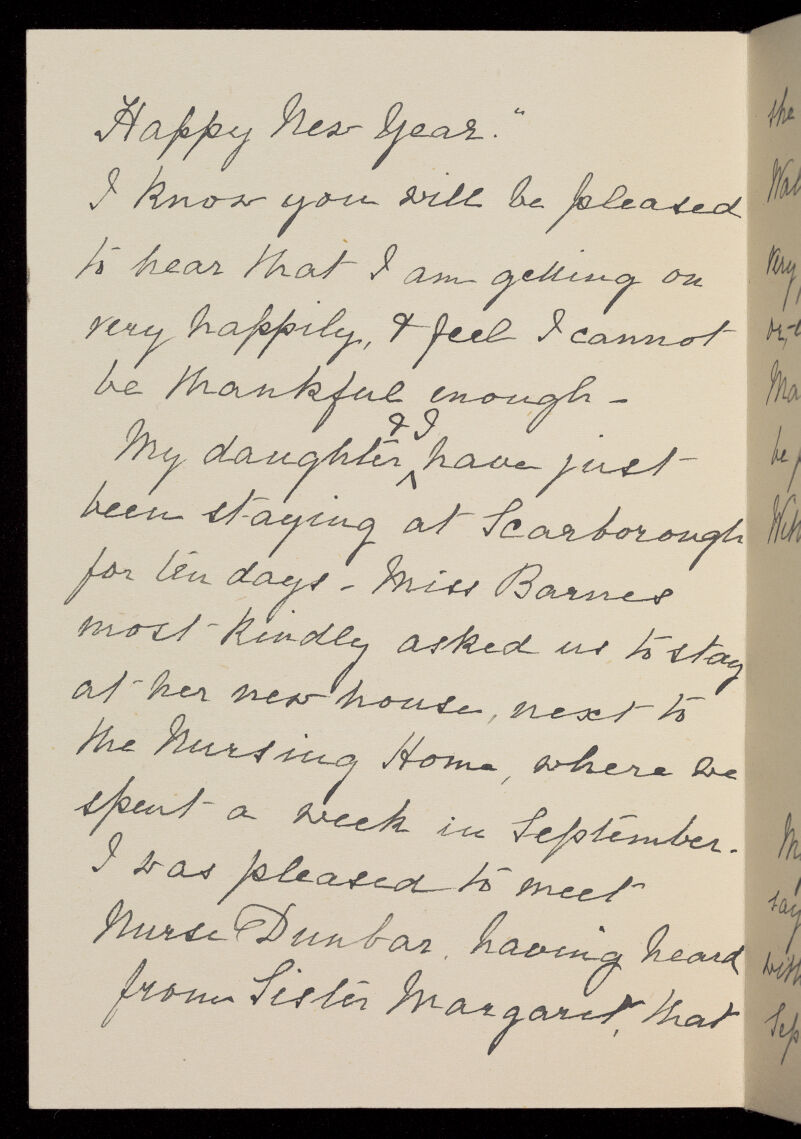 Happy New Year."
I know you will be pleased
to hear that I am getting on
very happily, & feel I cannot
be thankful enough -
My daughter & I have just
been staying at Scarborough
for ten days - Miss Barnes
most kindly asked us to stay
at her new house, next to
the Nursing Home, where we
spent a week in September.
I was pleased to meet
Nurse Dunbar, having heard
from Sister Margaret, that
she
very
be
say
with